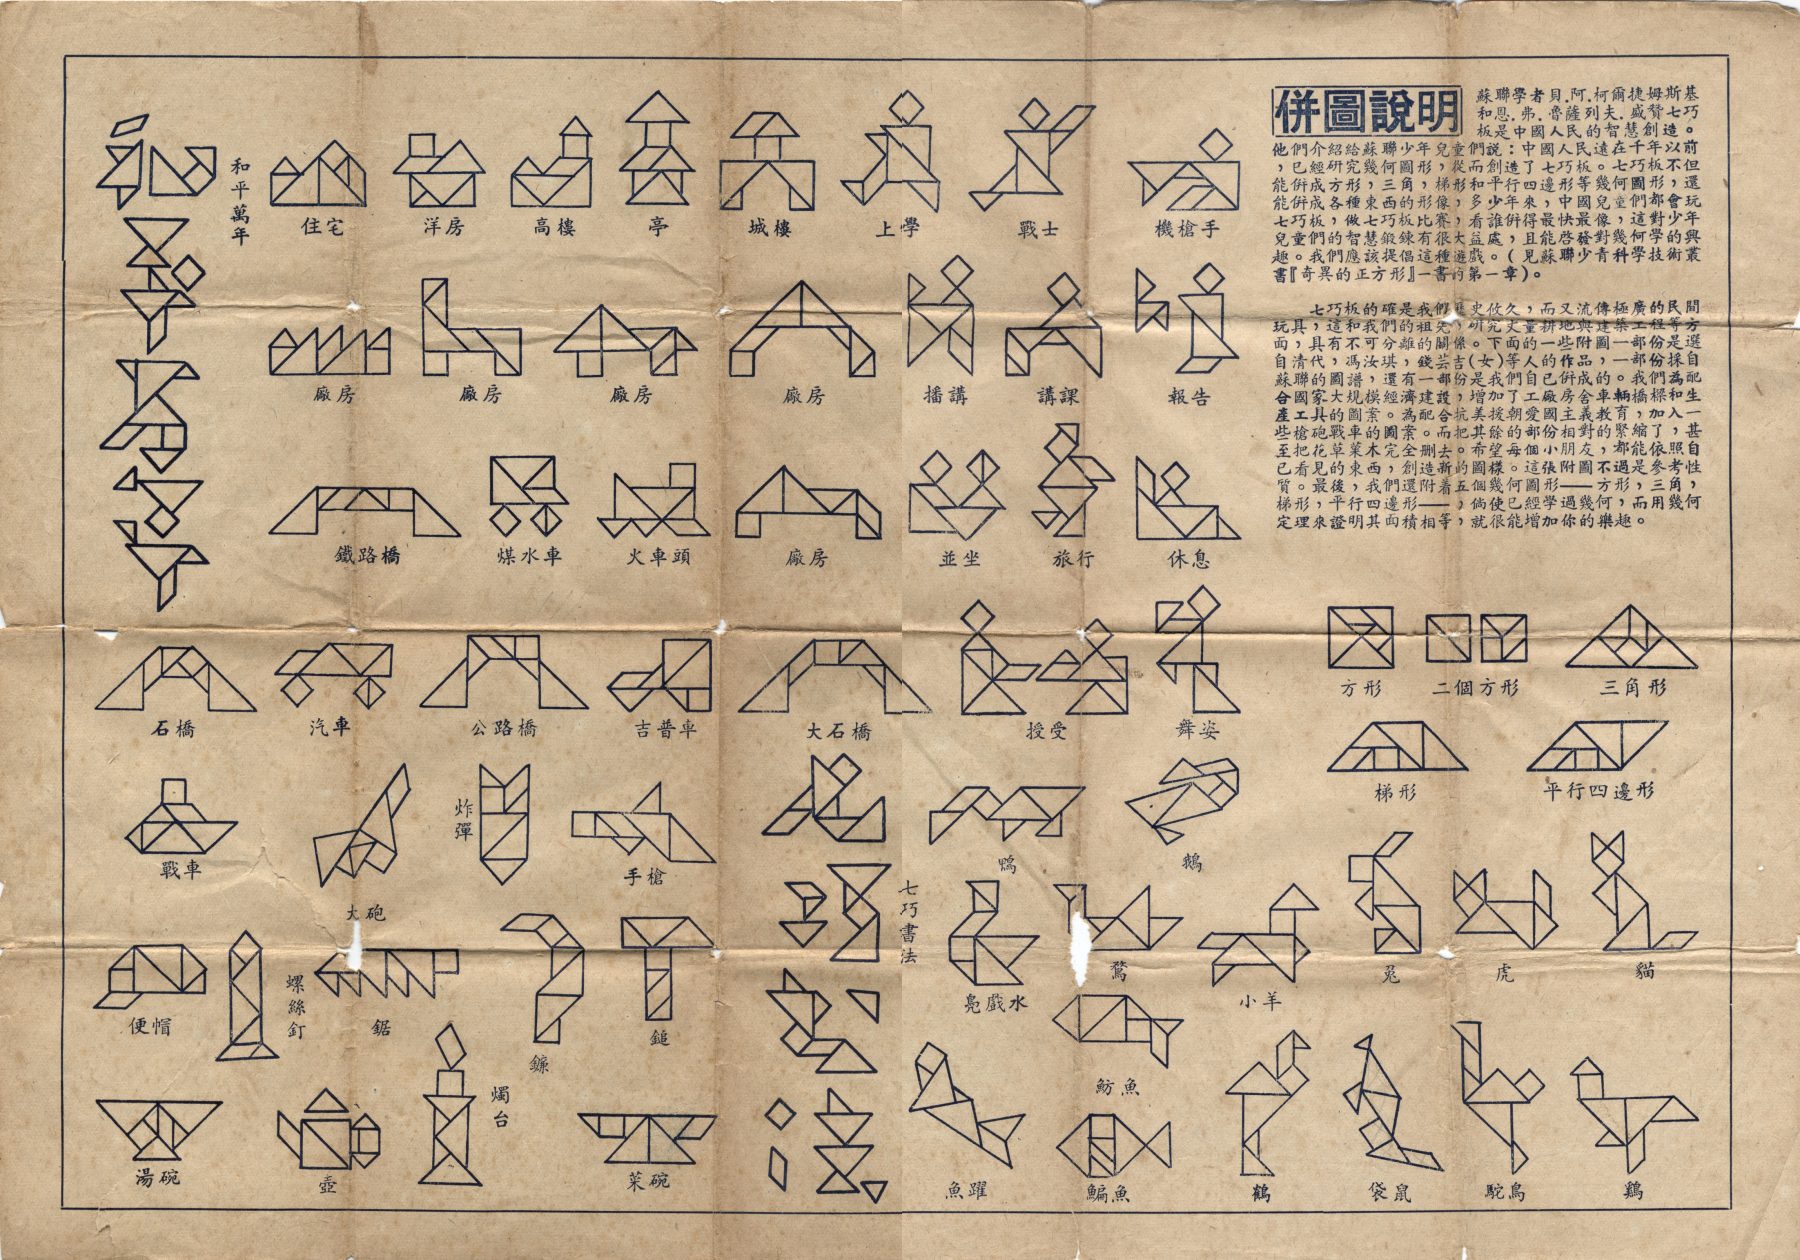 併圖說明
蘇聯學者貝.阿.柯爾捷姆斯基
和恩.弗.魯薩列夫.盛贊七巧
板是中國人民的智慧創造。
他們介紹給蘇聯少年兒童們說：中國人民遠在千年以前
，已經研究幾何圖形，從而創造了七巧板。七巧板不但
能併成方形，三角形，梯形和平行四邊形等幾何圖形，還
能併成各種東西的形像，多少年來，中國兒童們都會玩
七巧板，做七巧板比賽看誰併得最快最像，這對少年
兒童們的智慧鍛鍊有很大益處，且能啓發對幾何學的興
趣。我們應該提倡這種遊戲。(見蘇聯少青科學技術叢
書『奇異的正方形』一書的第一章)。
七巧板的確是我們歷史攸久，而又流傳極廣的民間
玩具，這和我們的祖先研究丈量，耕地與建築工程等方
面，具有不可分離的關係。下面的一些附圖，一部份是選
自清代，馮汝琪的錢芸吉(女)等人的作品，一部份是採自
蘇聯的圖譜，還有一部份是我們自己併成的。我們為配
合國家大規模經濟建設，增加了工廠房舍，車輛橋樑和生
產工具的圖案。為配合抗美援朝愛國主義教育，加入一
些槍砲戰車的圖案，而把其餘的部份相對的緊縮了，甚
至把花草菜木完全删去。希望每個小朋友，都能依照自
已看見的東西，創造新的圖樣。這張附圖，不過是參考性
質。最後，我們還附着五個幾何圖形——方形，三角，
梯形，平行四邊形——，倘使已經學過幾何，而用幾何
定理來證明其面積相等，就很能增加你的樂趣。
和平萬年
住宅
洋房
高樓
亭
城樓
上學
戰士
機槍手
廠房
廠房
廠房
廠房
播講
講課
報告
鐵路橋
煤水車
火車頭
廠房
並坐
旅行
休息
石橋
汽車
公路橋
吉普車
大石橋
授受
舞姿
方形
二個方形
三角形
梯形
平行四邊形
戰車
大砲
炸彈
手槍
七巧書法
鴨
鵝
便帽
螺絲釘
鋸
鐮
鎚
鳧戲水
鶩
小羊
兎
虎
貓
湯碗
壺
燭台
菜碗
魚躍
魴魚
鯿魚
鶴
袋鼠
駝鳥
鷄